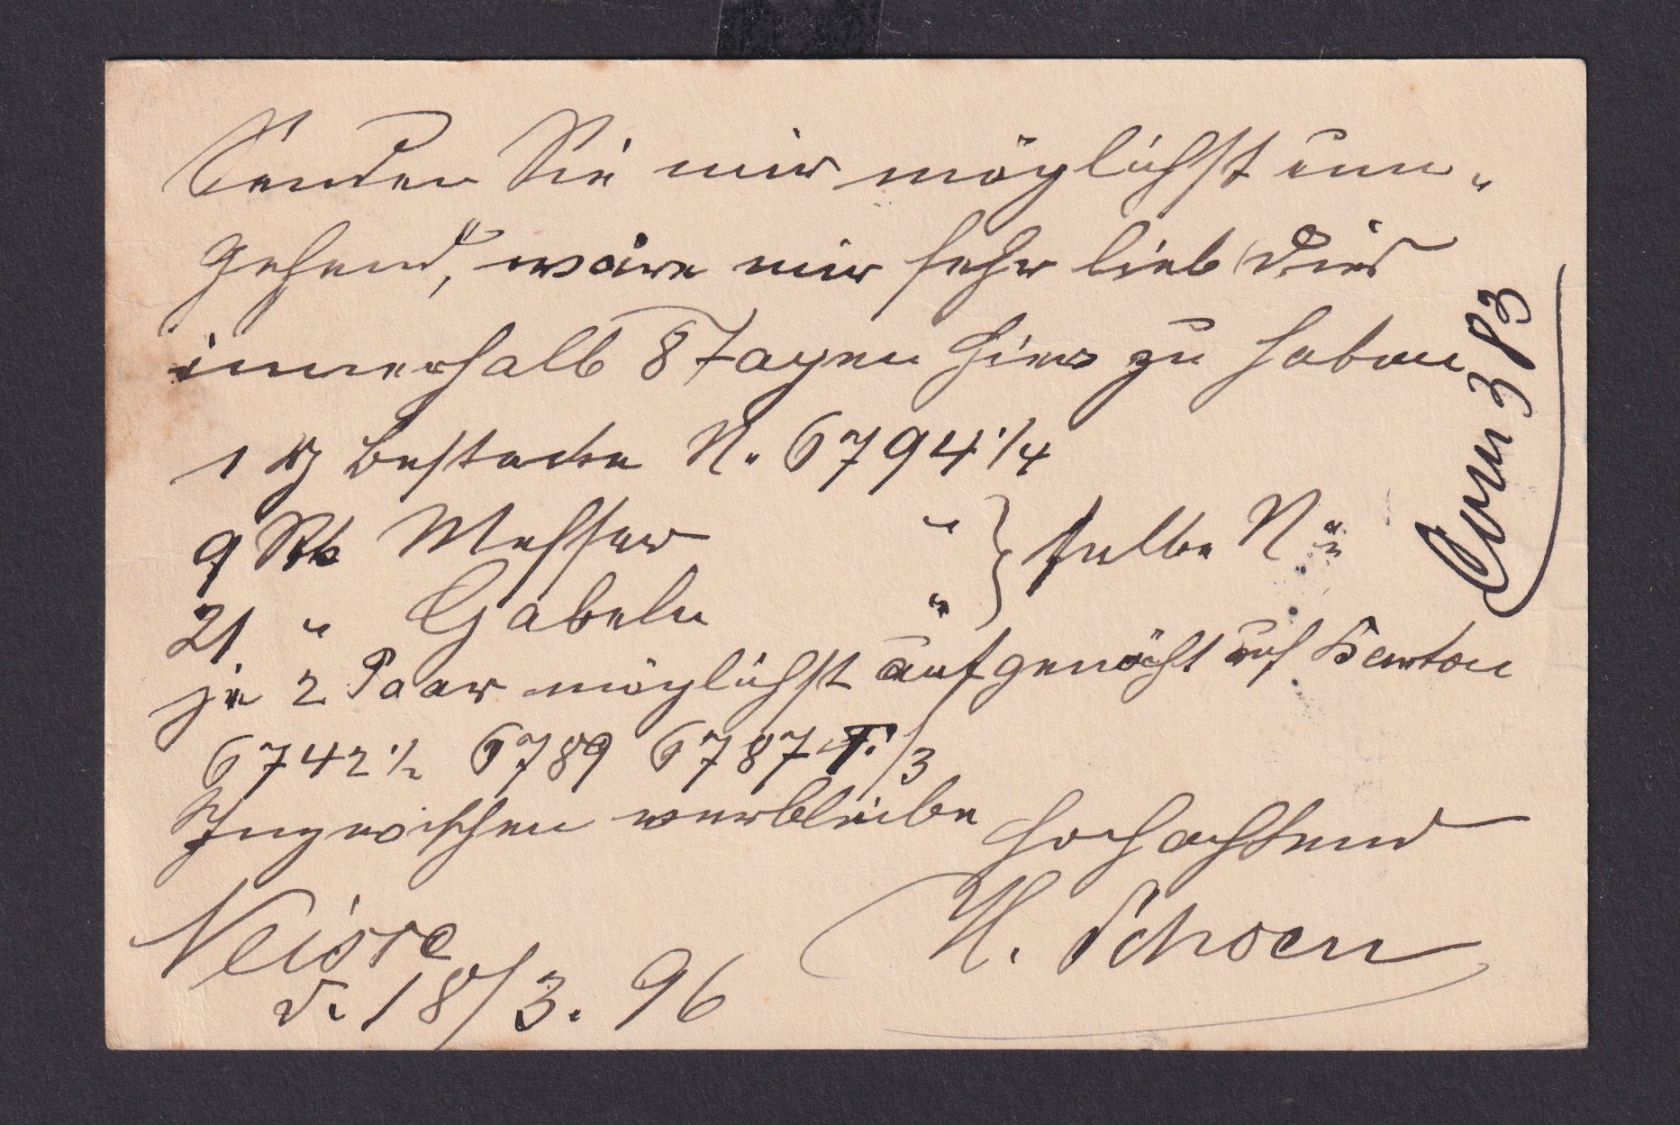 Senden Sie mir möglichst um-
gehend, wäre mir sehr lieb dies
innerhalb 8 Tagen hier zu haben
1 Bestecke N. 6794 1/4
9 Stk Messer " } selbe N°
21 " Gabeln "
je 2 Paar möglichst aufgenäht auf Karton
6742 1/2 6789 6787 F./3
Inzwischen verbleibe
Hochachtend
H. Schoen
Neisse
d. 18/3. 96
Com 383